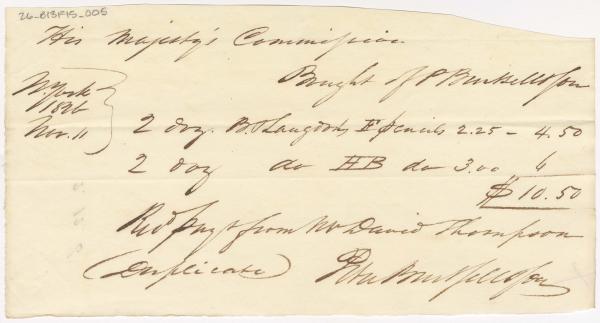 26-B13F15_005
His Majesty's Commission
Bought of P Burtsell & Son
N. York
1826
Nov. 11
2 doz. B. & Langdon's F pencils 2.25 - 4.50
2 doz do HB do 3.00 6
$ 10.50
Recd payt from Mr David Thompson
(Duplicate) Peter Burtsell & Son